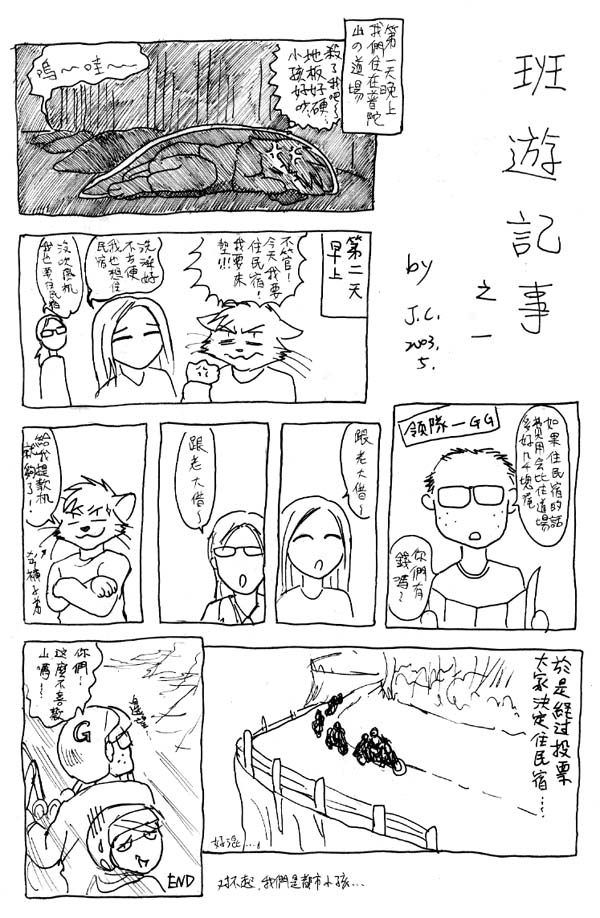 班遊記事
之一
by
J.C.
2003.
5.
第一天晚上
我們住在普陀
山の道場
殺了我吧～
地板好硬…
小孩好吵…
嗚～哇～
第二天
早上
不管！
今天我要
住民宿！
我要床
墊!!!
洗澡好
不方便
我也想住
民宿
沒吹風机
我也要住民宿
領隊—GG
如果住民宿的話
費用会比住道場
多好几千塊喔
你們有
錢嗎～
跟老大借～
跟老大借～
給我提款机
就夠了！
於是経过投票
大家決定住民宿…
好遠……
你們…
這麼不喜歡
山嗎…
遥望
END
対不起,我們是都市小孩…